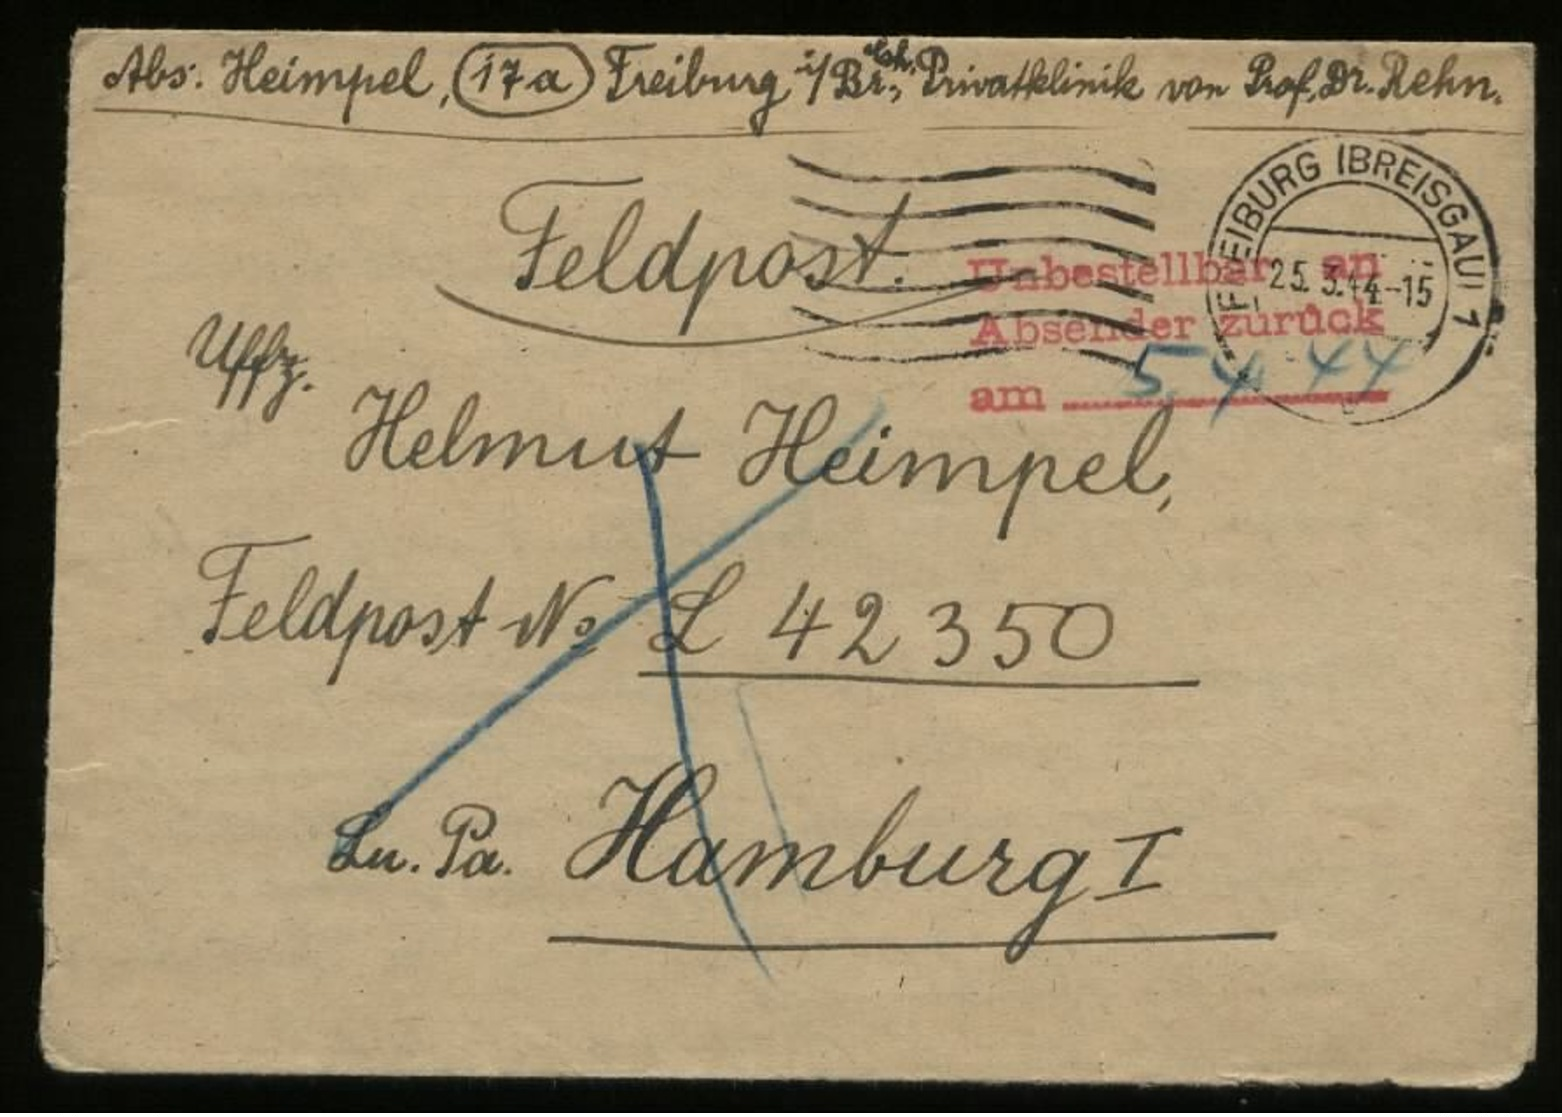 Abs: Heimpel, 17a Freiburg i/Br., Privatklinik von Prof. Dr. Rehn.
Feldpost.
FREIBURG (BREISGAU) 1
25. 3.44.-15
Unbestellbar an
Absender zurück
am 5 4 44
Uffz.
Helmut Heimpel,
Feldpost No L 42350
Lu. Pa. Hamburg I